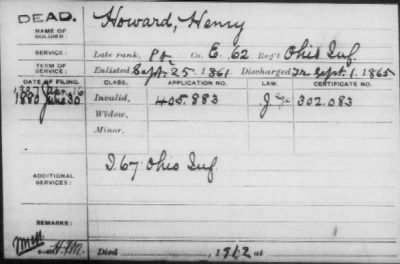 DEAD.
Howard, Henry
NAME OF
SOLDIER:
SERVICE:
Late rank, Pt Co. E. 62 Reg't Ohio Inf.
TERM OF
SERVICE:
Enlisted Sept. 25 1861 Discharged Sept. 1. 1865
DATE OF FILING. CLASS. APPLICATION NO. LAW. CERTIFICATE NO.
1880 June 30 Invalid, 405.883 302.083
Widow,
Minor,
ADDITIONAL
SERVICES:
D. 67 Ohio Inf
REMARKS:
Died 1912 at